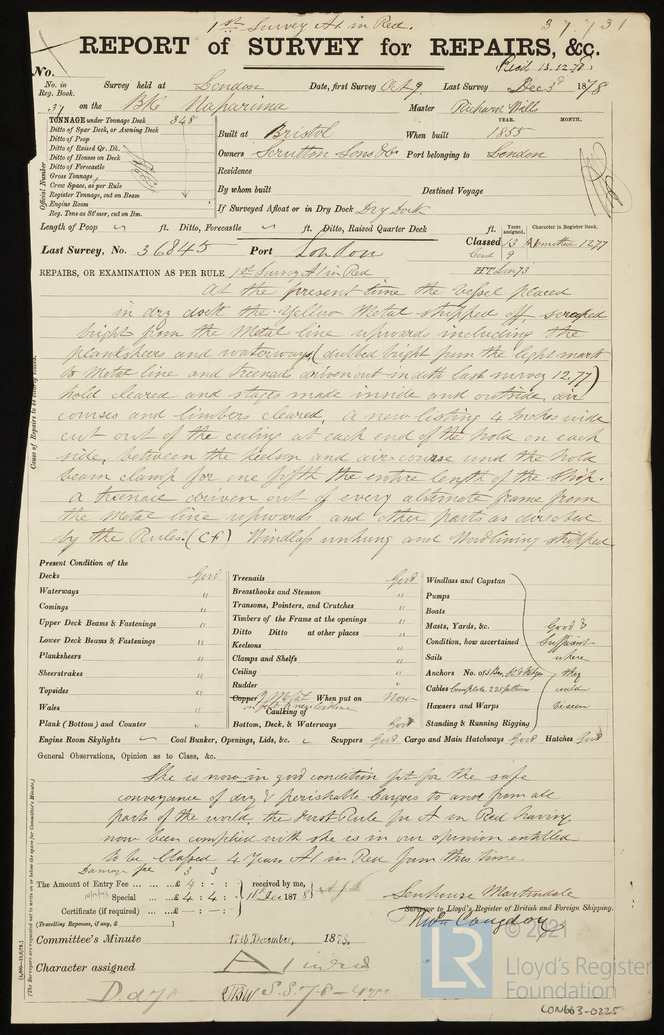 1st Survey A1 in Red.
37731
REPORT of SURVEY for REPAIRS, &c.
Recd 13.12.78
No.
No. in Reg. Book. Survey held at London Date, first Survey Oct 9 Last Survey Dec 3d 1878
37 on the Bk Naparima Master Richard Wills
TONNAGE under Tonnage Deck 345
Ditto of Spar Deck, or Awning Deck
Ditto of Poop
Ditto of Raised Qr. Dk.
Ditto of Houses on Deck
Ditto of Forecastle
Gross Tonnage
Crew Space, as per Rule
Register Tonnage, cut on Beam
Engine Room
Reg. Tons as St'mer, cut on Bm.
Official Number
YEAR. MONTH.
Built at Bristol When built 1855
Owners Scrutton Sons & Co Port belonging to London
Residence
By whom built Destined Voyage
If Surveyed Afloat or in Dry Dock Dry Dock
Length of Poop ft. Ditto, Forecastle ft. Ditto, Raised Quarter Deck ft.
Years assigned. Character in Register Book.
Last Survey, No. 36845 Port London Classed 13 12.77
Cond 9
REPAIRS, OR EXAMINATION AS PER RULE 1st Survey A1 in Red
At the present time the Vessel placed
in dry dock the Yellow Metal stripped off scraped
bright from the Metal line upwards including the
planksheers and waterways (dubbed bright from the light mark
to Metal line and treenails driven out in doth last survey 12.77)
hold cleared and stages made inside and outside, air
courses and limbers cleared, a new listing 4 inches wide
cut out of the ceiling at each end of the hold on each
side, between the kelson and air course and the hold
beam clamp for one fifth the entire length of the Ship.
a treenail driven out of every alternate frame from
the Metal line upwards and other parts as directed
by the Rules. Windlass unhung and Woodlining stripped
Cause of Repairs to be clearly stated.
Present Condition of the
Decks Good
Waterways "
Comings "
Upper Deck Beams & Fastenings "
Lower Deck Beams & Fastenings "
Planksheers "
Sheerstrakes "
Topsides "
Wales "
Plank (Bottom) and Counter "
Treenails Good
Breasthooks and Stemson "
Transoms, Pointers, and Crutches "
Timbers of the Frame at the openings "
Ditto Ditto at other places "
Keelsons "
Clamps and Shelfs "
Ceiling "
Rudder "
Copper Y Metal When put on Now
Caulking of
Bottom, Deck, & Waterways Good
Windlass and Capstan
Pumps
Boats
Masts, Yards, &c. Good &
Condition, how ascertained Sufficient
Sails where
Anchors No. of they
Cables Complete 225 fathom could
Hausers and Warps be seen
Standing & Running Rigging
Engine Room Skylights Coal Bunker, Openings, Lids, &c. Scuppers Good Cargo and Main Hatchways Good Hatches Good
General Observations, Opinion as to Class, &c.
She is now in good condition fit for the safe
conveyance of dry & perishable Cargoes to and from all
parts of the world. the First Rule for A in Red having
now been complied with she is in our opinion entitled
to be Classed 4 Years A1 in Red from this time
Damage fee 3 3
The Amount of Entry Fee £ 4 : - : received by me,
Special £ 4 : 4 : Dec 1878
Certificate (if required) £ - : - :
(Travelling Expenses, if any, £ )
Senhouse Martindale
Surveyor to Lloyd's Register of British and Foreign Shipping.
Thos. Congdon
Committee's Minute 17th December, 1878.
Character assigned A1 in red
S.S. 78 - 4 yrs
© 2021
LR
Lloyd's Register
Foundation
LON663-0225